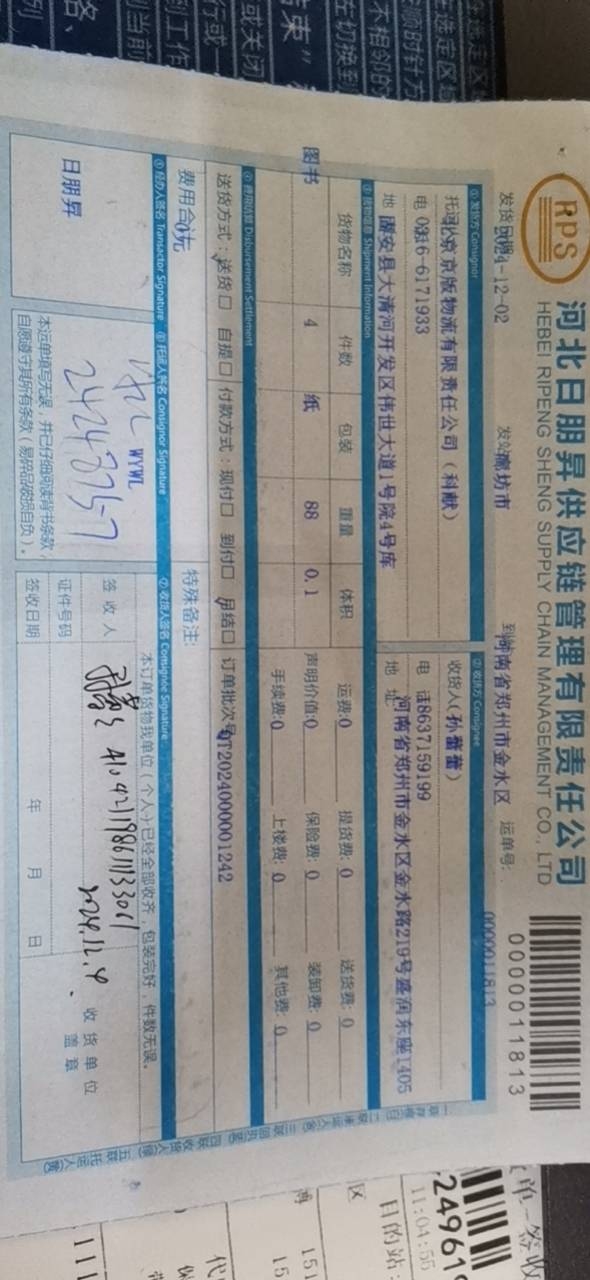 RPS
河北日朋昇供应链管理有限责任公司
HEBEI RIPENG SHENG SUPPLY CHAIN MANAGEMENT CO., LTD
0000011813
发货日期 2024-12-02 发站 廊坊市 到站 河南省郑州市金水区 运单号: 0000011813
①发货方 Consignor
②收货方 Consignee
北京京版物流有限责任公司（科献）
收货人（孙蕾蕾）
电 0316-6171933
电 话 18637159199
地 固安县大清河开发区伟世大道1号院4号库
地 址 河南省郑州市金水区金水路219号盛润东座1405
③货物信息 Shipment Information
货物名称 件数 包装 重量 体积
运费:0 提货费: 0 送货费: 0
图书 4 纸 88 0.1
声明价值:0 保险费: 0 装卸费: 0
手续费:0 上楼费: 0 其他费: 0
④费用结算 Disbursement Settlement
送货方式：送货□ 自提□ 付款方式：现付□ 到付□ 月结□ 订单批次号 DT2024000001242
费用合 0元
特殊备注:
⑤经办人签名 Transactor Signature
⑥托运人签名 Consignor Signature
⑦收货人签名 Consignee Signature
日朋昇
WYWL
本订单货物我单位（个人）已经全部收齐，包装完好，件数无误。
签收人
2024.12.4
证件号码
收货单位
盖章
签收日期 年 月 日
本运单填写无误，并已仔细阅读背书条款，
自愿遵守其所有条款（易碎品破损自负）。
11:04:55
目的站: